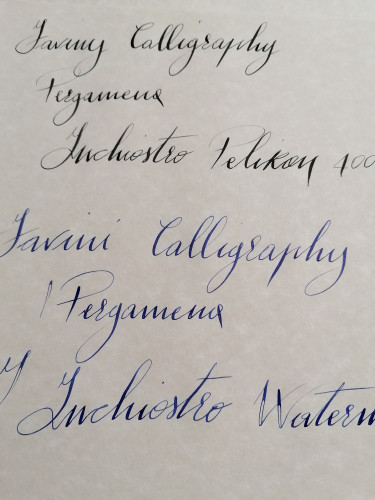 Favini Calligraphy
Pergamena
Inchiostro Pelikan 400
Favini Calligraphy
Pergamena
Inchiostro Waterm